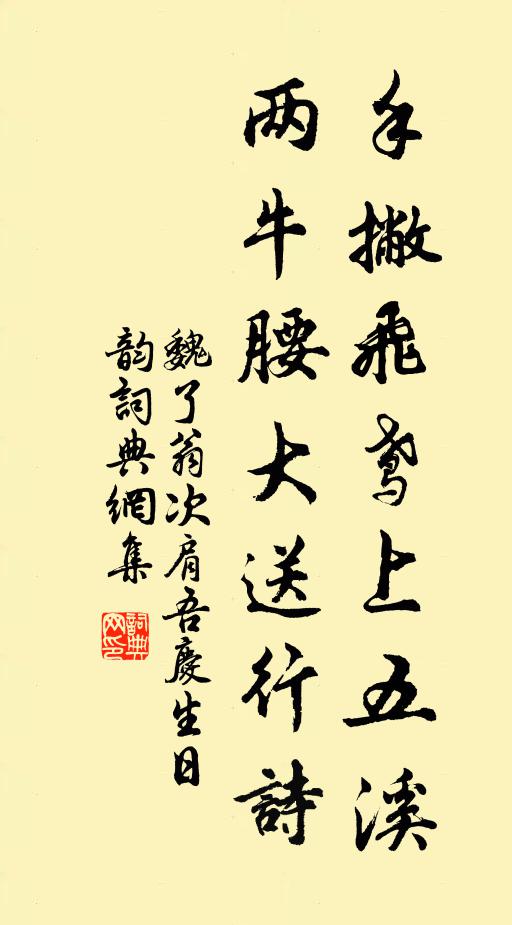 手撇飛鳶上五溪
两牛腰大送行詩
魏了翁次肩吾慶生日
韵詞典網集
詞典
网印